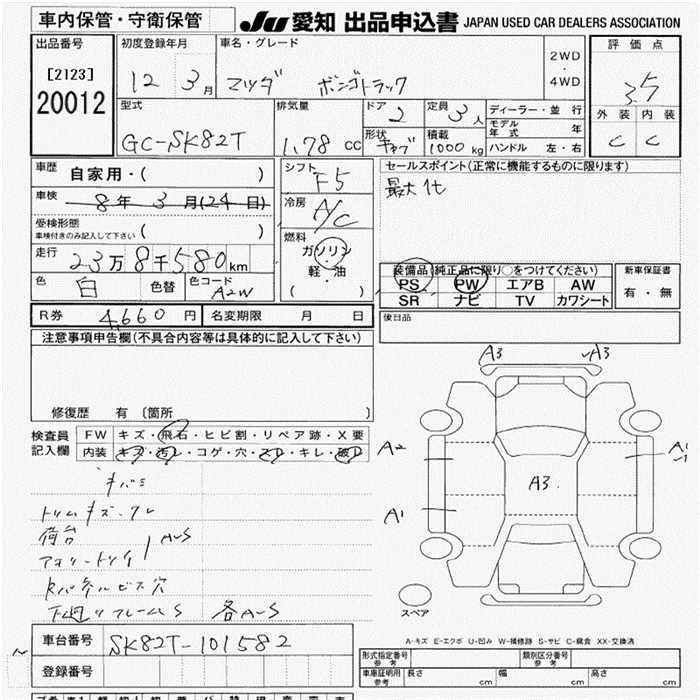 車内保管・守衛保管
JU 愛知 出品申込書 JAPAN USED CAR DEALERS ASSOCIATION
出品番号
[2123]
20012
初度登録年月
12 3月
車名・グレード
マツダ ボンゴトラック
2WD
・
4WD
評価点
3.5
外装 内装
C C
型式
GC-SK82T
排気量
1.78 cc
ドア
2
定員
3人
形状
キャブ
積載
1000 kg
ディーラー・並行
モデル年式 年
ハンドル 左・右
車歴
自家用・( )
車検
8年 3月(24日)
受検形態
車検付きのみ記入して下さい ( )
走行
23万8千580km
色
白
色替
色コード
A2W
シフト
F5
冷房
A/C
燃料
ガソリン
・
軽・油
( )
セールスポイント(正常に機能するものに限ります)
最大1t
装備品(純正品に限り○をつけてください)
PS PW エアB AW
SR ナビ TV カワシート
新車保証書
有・無
後日品
R券 4,660円 名変期限 月 日
注意事項申告欄(不具合内容等は具体的に記入して下さい)
修復歴 有 〔箇所 〕
検査員
記入欄
FW キズ・飛石・ヒビ割・リペア跡・X要
内装 キズ・汚レ・コゲ・穴・スレ・キレ・破レ
キバミ
トリムキズ・ワレ
荷台
アオリ
AuS
パネルビス穴
下廻りフレームS 各AuS
A3 A3
A2
A1
A3
A1
A1
スペア
A-キズ E-エクボ U-凹み W-補修跡 S-サビ C-腐食 XX-交換済
車台番号
SK82T-101582
登録番号
形式指定番号
参考
類別区分番号
参考
車庫証明用
参考
長さ cm 幅 cm 高さ cm